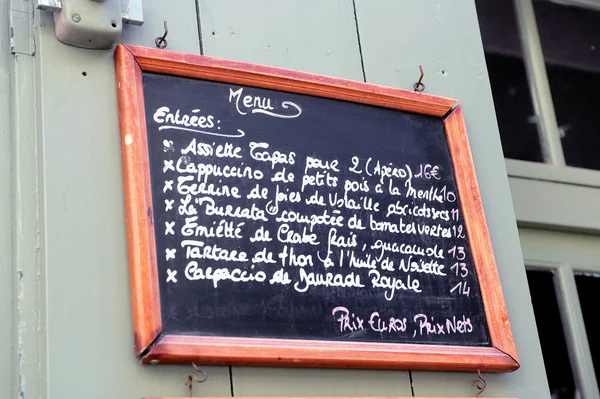 Menu
Entrées:
x Assiette Tapas pour 2 (Apéro) 16€
x Cappuccino de petits pois à la menthe 10
x Terrine de foies de volaille abricots secs 11
x La "Burrata" compotée de tomates vertes 12
x Emietté de Crabe frais, guacamole 13
x Tartare de thon à l'huile de Noisette 13
x Carpaccio de Daurade Royale 14
Prix Euros, Prix Nets